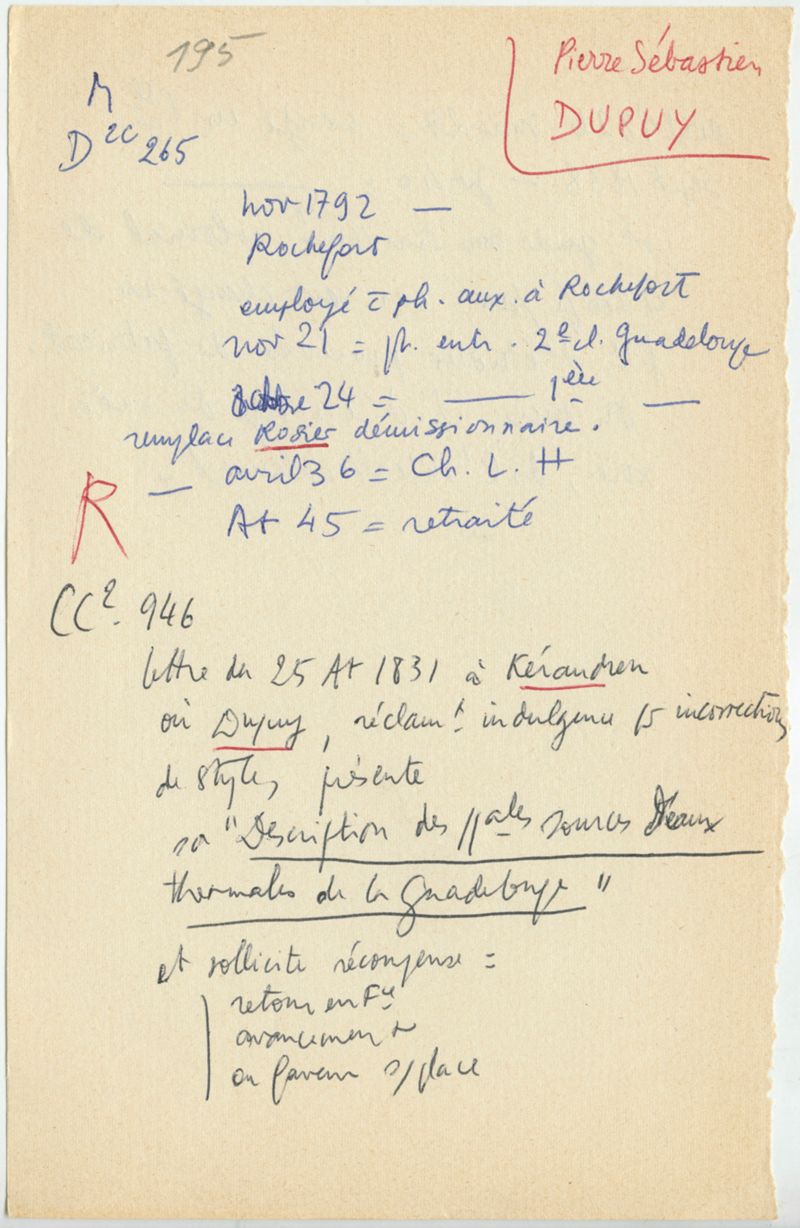 195
Pierre Sébastien
DUPUY
M
D 2C 265
nov 1792 —
Rochefort
employé c ph. aux. à Rochefort
nov 21 = ph. entr. 2e cl. Guadeloupe
24 = —— 1ère —
remplace Rosier démissionnaire.
R — avril 36 = Ch. L. H
At 45 = retraité
CC2. 946
lettre du 25 At 1831 à Kérandren
où Dupuy, réclamt indulgence pr incorrections
de style, présente
sa "Description des ppales sources d'eaux
thermales de la Guadeloupe"
et sollicite récompense =
retour en Fce
avancement
ou faveur s/place